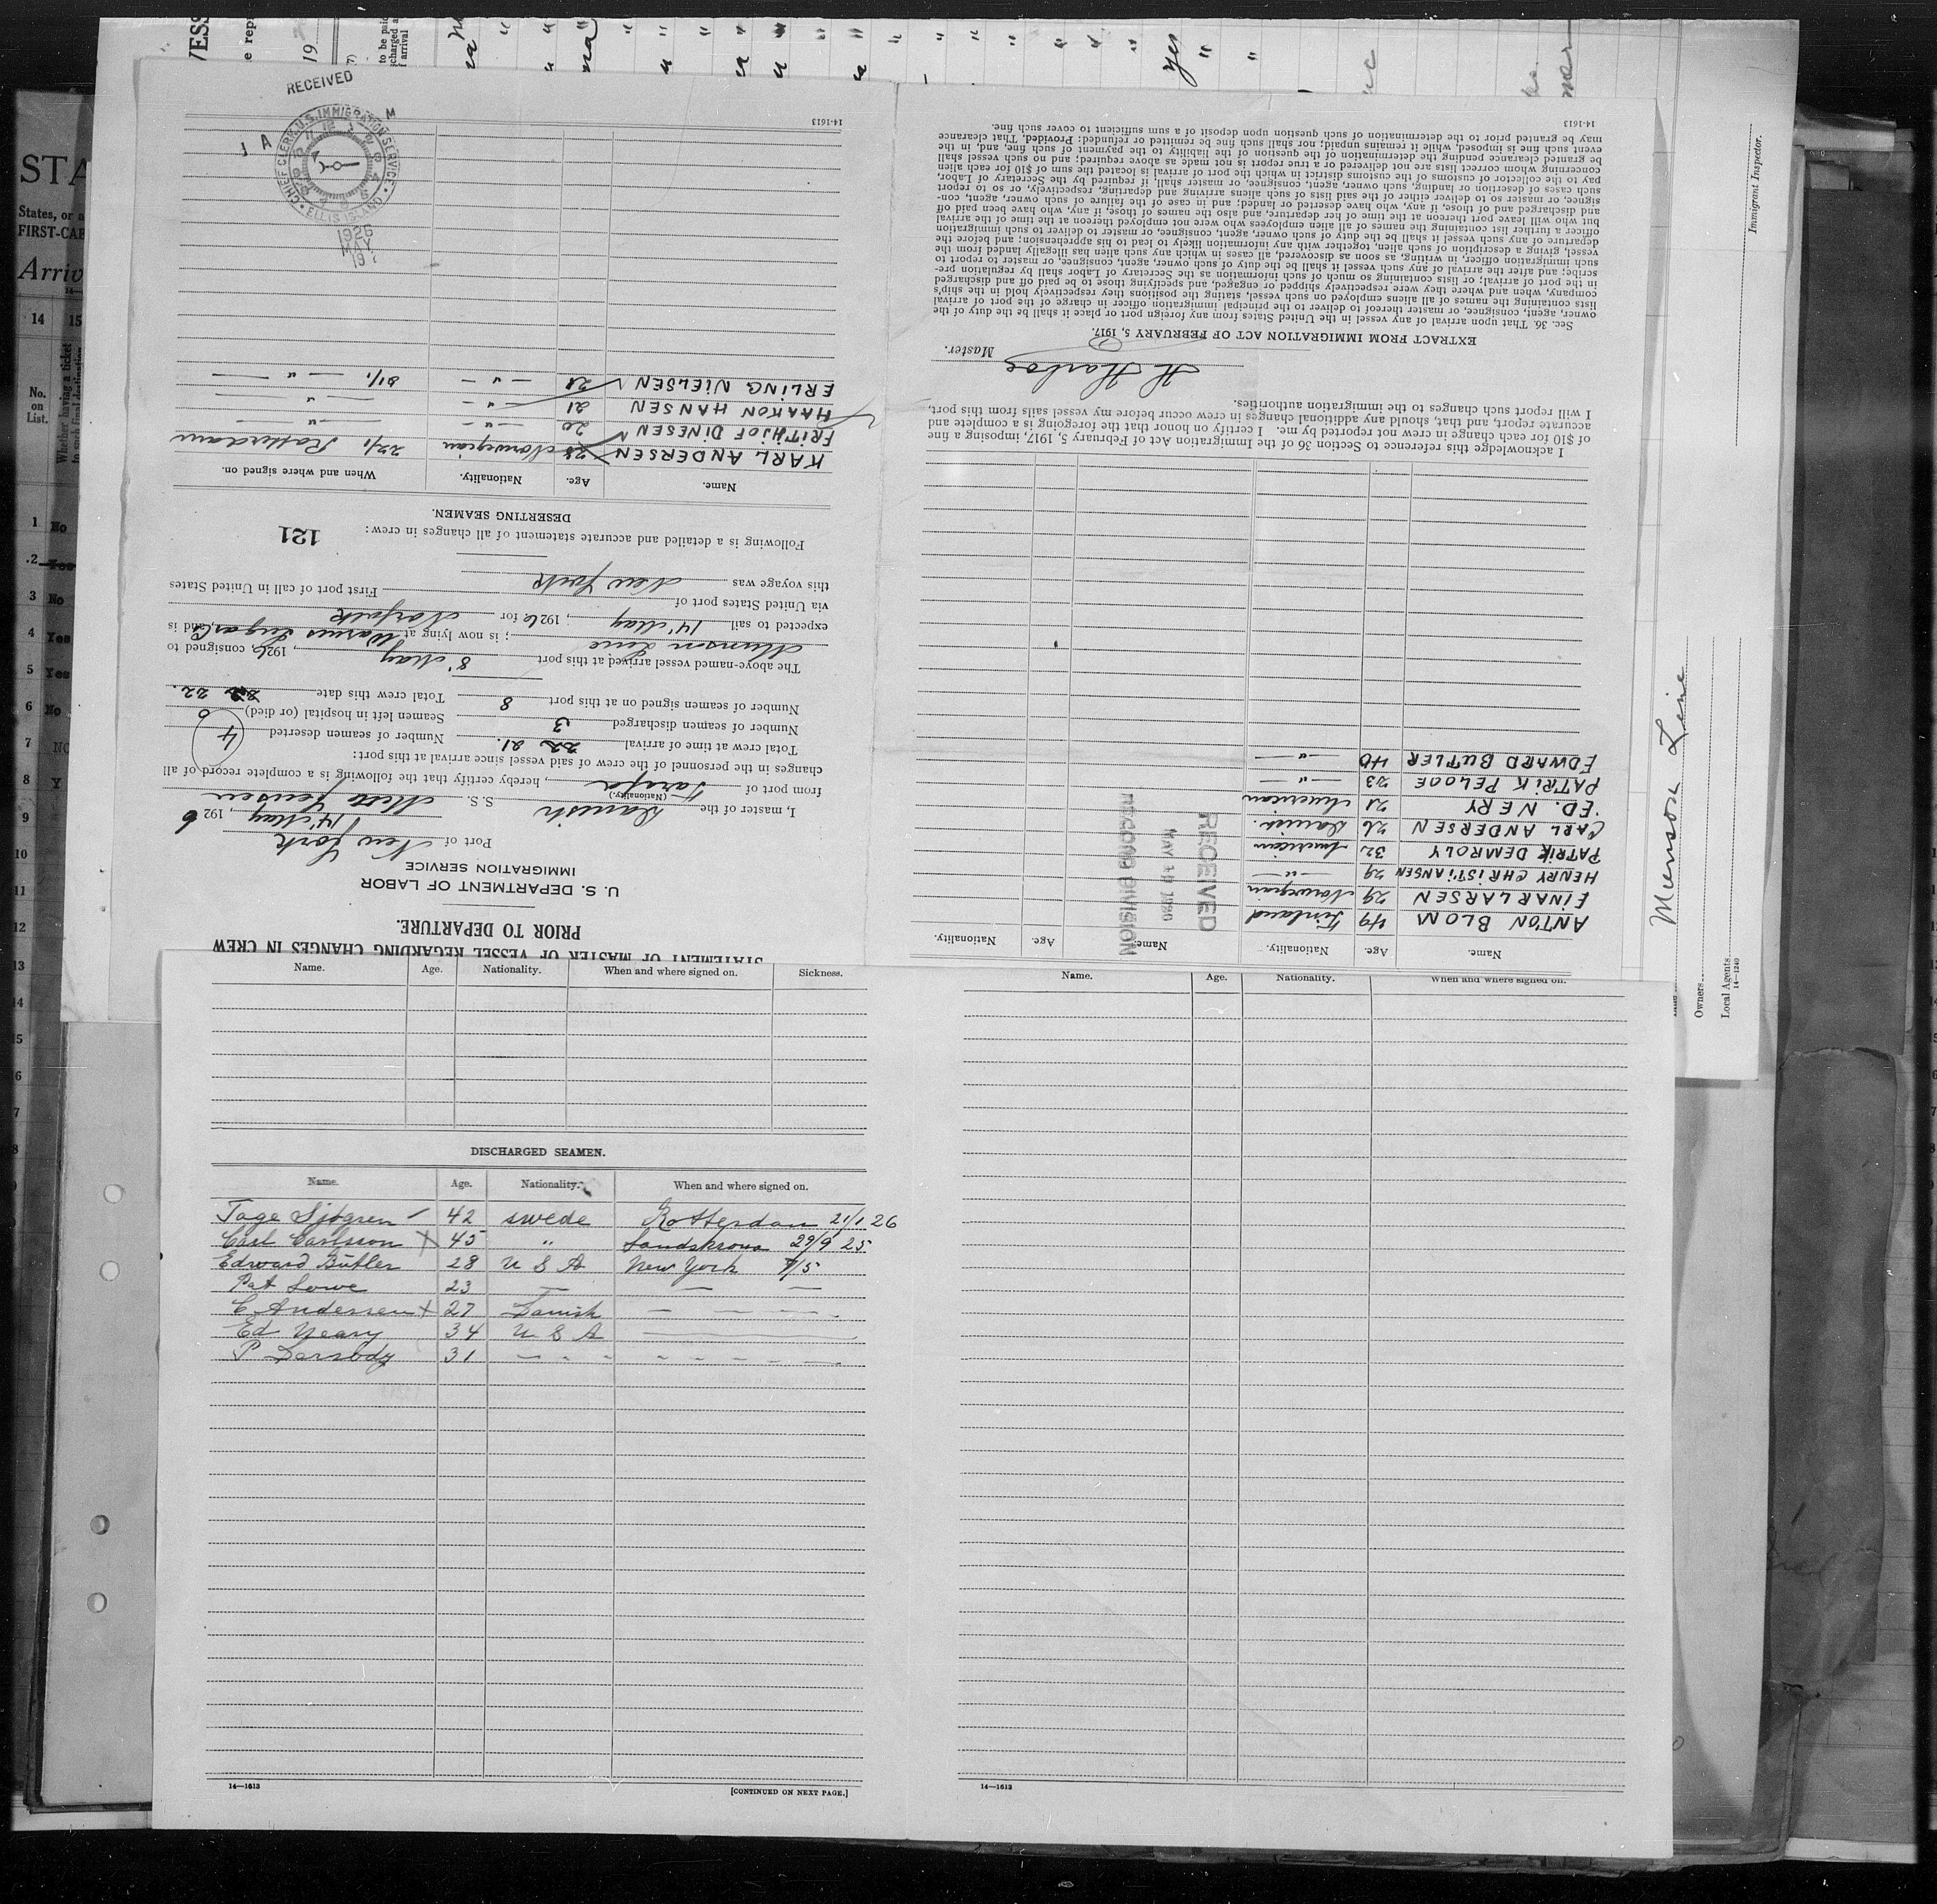 RECEIVED
CHIEF CLERK, U.S. IMMIGRATION SERVICE
ELLIS ISLAND
1926
MAY
STATEMENT OF MASTER OF VESSEL REGARDING CHANGES IN CREW
PRIOR TO DEPARTURE.
U. S. DEPARTMENT OF LABOR
IMMIGRATION SERVICE
Port of New York
14' May, 1926
I, master of the Danish S. S. Mette Jensen
(Nationality.)
from port of Tarafa, hereby certify that the following is a complete record of all
changes in the personnel of the crew of said vessel since arrival at this port:
Total crew at time of arrival 22 21. Number of seamen deserted 4
Number of seamen discharged 3 Seamen left in hospital (or died) 0
Number of seamen signed on at this port 8 Total crew this date 22.
The above-named vessel arrived at this port 8' May, 1926, consigned to
Munson Line; is now lying at Warners Sugar C, and is
expected to sail 14' May, 1926 for Norfolk
via United States port of First port of call in United States
this voyage was New York
Following is a detailed and accurate statement of all changes in crew:
121
DESERTING SEAMEN.
Name. Age. Nationality. When and where signed on.
KARL ANDERSEN 28 Norwegian 22/1 Rotterdam
FRITHJOF DINESEN 20 — " — — " —
HAAKON HANSEN 21 — " — — " —
ERLING NIELSEN 21 — " — 21/1 — " —
14-1613
Name. Age. Nationality. Name. Age. Nationality.
ANTON BLOM 49 Finland
EINAR LARSEN 29 Norwegian
HENRY CHRISTIANSEN 29 — " —
PATRIK DEMROLY 32 American
CARL ANDERSEN 26 Danish.
ED. NERY 21 American
PATRIK PELODE 23 — " —
EDWARD BUTLER 40 — " —
RECEIVED
RECORD DIVISION
I acknowledge this reference to Section 36 of the Immigration Act of February 5, 1917, imposing a fine
of $10 for each change in crew not reported by me. I certify on honor that the foregoing is a complete and
accurate report, and that, should any additional changes in crew occur before my vessel sails from this port,
I will report such changes to the immigration authorities.
H Harboe
Master.
EXTRACT FROM IMMIGRATION ACT OF FEBRUARY 5, 1917.
Sec. 36. That upon arrival of any vessel in the United States from any foreign port or place it shall be the duty of the
owner, agent, consignee, or master thereof to deliver to the principal immigration officer in charge of the port of arrival
lists containing the names of all aliens employed on such vessel, stating the positions they respectively hold in the ship's
company, when and where they were respectively shipped or engaged, and specifying those to be paid off and discharged
in the port of arrival; or lists containing so much of such information as the Secretary of Labor shall by regulation pre-
scribe; and after the arrival of any such vessel it shall be the duty of such owner, agent, consignee, or master to report to
such immigration officer, in writing, as soon as discovered, all cases in which any such alien has illegally landed from the
vessel, giving a description of such alien, together with any information likely to lead to his apprehension; and before the
departure of any such vessel it shall be the duty of such owner, agent, consignee, or master to deliver to such immigration
officer a further list containing the names of all alien employees who were not employed thereon at the time of the arrival
but who will leave port thereon at the time of her departure, and also the names of those, if any, who have been paid off
and discharged and of those, if any, who have deserted or landed; and in case of the failure of such owner, agent, con-
signee, or master so to deliver either of the said lists of such aliens arriving and departing, respectively, or so to report
such cases of desertion or landing, such owner, agent, consignee, or master shall, if required by the Secretary of Labor,
pay to the collector of customs of the customs district in which the port of arrival is located the sum of $10 for each alien
concerning whom correct lists are not delivered or a true report is not made as above required; and no such vessel shall
be granted clearance pending the determination of the question of the liability to the payment of such fine, and, in the
event such fine is imposed, while it remains unpaid; nor shall such fine be remitted or refunded: Provided, That clearance
may be granted prior to the determination of such question upon deposit of a sum sufficient to cover such fine.
14-1613
Name. Age. Nationality. When and where signed on. Sickness.
DISCHARGED SEAMEN.
Name. Age. Nationality. When and where signed on.
Tage Sjögren 42 swede Rotterdam 21/1 26
Carl Carlsson 45 " Landskrona 29/9 25
Edward Butler 28 U S A New York 7/5
Pat Lowe 23 — — — —
C Andersen 27 Danish — — —
Ed Neary 34 U S A
P Dersody 31
14—1613
[CONTINUED ON NEXT PAGE.]
Name. Age. Nationality. When and where signed on.
14—1613
Immigrant Inspector.
Munson Line
Owners
Local Agents
14—1240
STA
States, or a
FIRST-CAB
Arriv
14 15
No. on List.
Whether having a ticket
1 No
2 Yes
3 No
4 Yes
5 Yes
6 No
7 NO
8 Y
9
10
11
12
13
yes